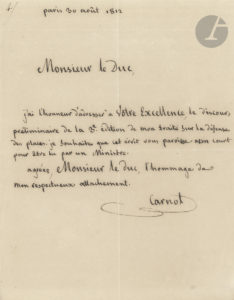 4/
paris 30 août 1812
Monsieur le Duc,
j'ai l'honneur d'adresser à Votre Excellence le discours
preliminaire de la 3e. édition de mon traité sur la défense
des places. je souhaite que cet écrit vous paroisse assez court
pour être lu par un Ministre.
agréez Monsieur le duc, l'hommage de
mon respectueux attachement.
Carnot